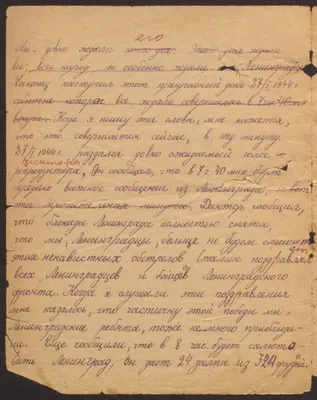 его
Мы давно ждали этого дня. Этого дня ждали
все, весь народ, но особенно ждали Ленинградцы
Наконец наступил этот прекрасный день 27/I 1944 г.
которая все ждали совершилось в 7 час 40 мин
вечера. Когда я пишу эти слова, мне кажется,
что это совершится сейчас, в ту минуту
27/I 1944 г. раздался давно ожидаемый голос
диктора
репродуктора, Он сообщил, что в 7 ч 40 мин будет
передано важное сообщение из Ленинграда
минута. Диктор сообщил,
что блокада Ленинграда полностью снята,
что мы, Ленинградцы, больше не будем слышать
этих ненавистных обстрелов. Сталин поздравлял
всех Ленинградцев и бойцов Ленинградского
фронта. Когда я слушала эти поздравления
мне казалось, что частичку этой победы мы
Ленинградские ребята, тоже немного приблизи-
ли. Еще сообщили, что в 8 час. будет салюто-
вать Ленинград, он даст 24 залпа из 324 орудий